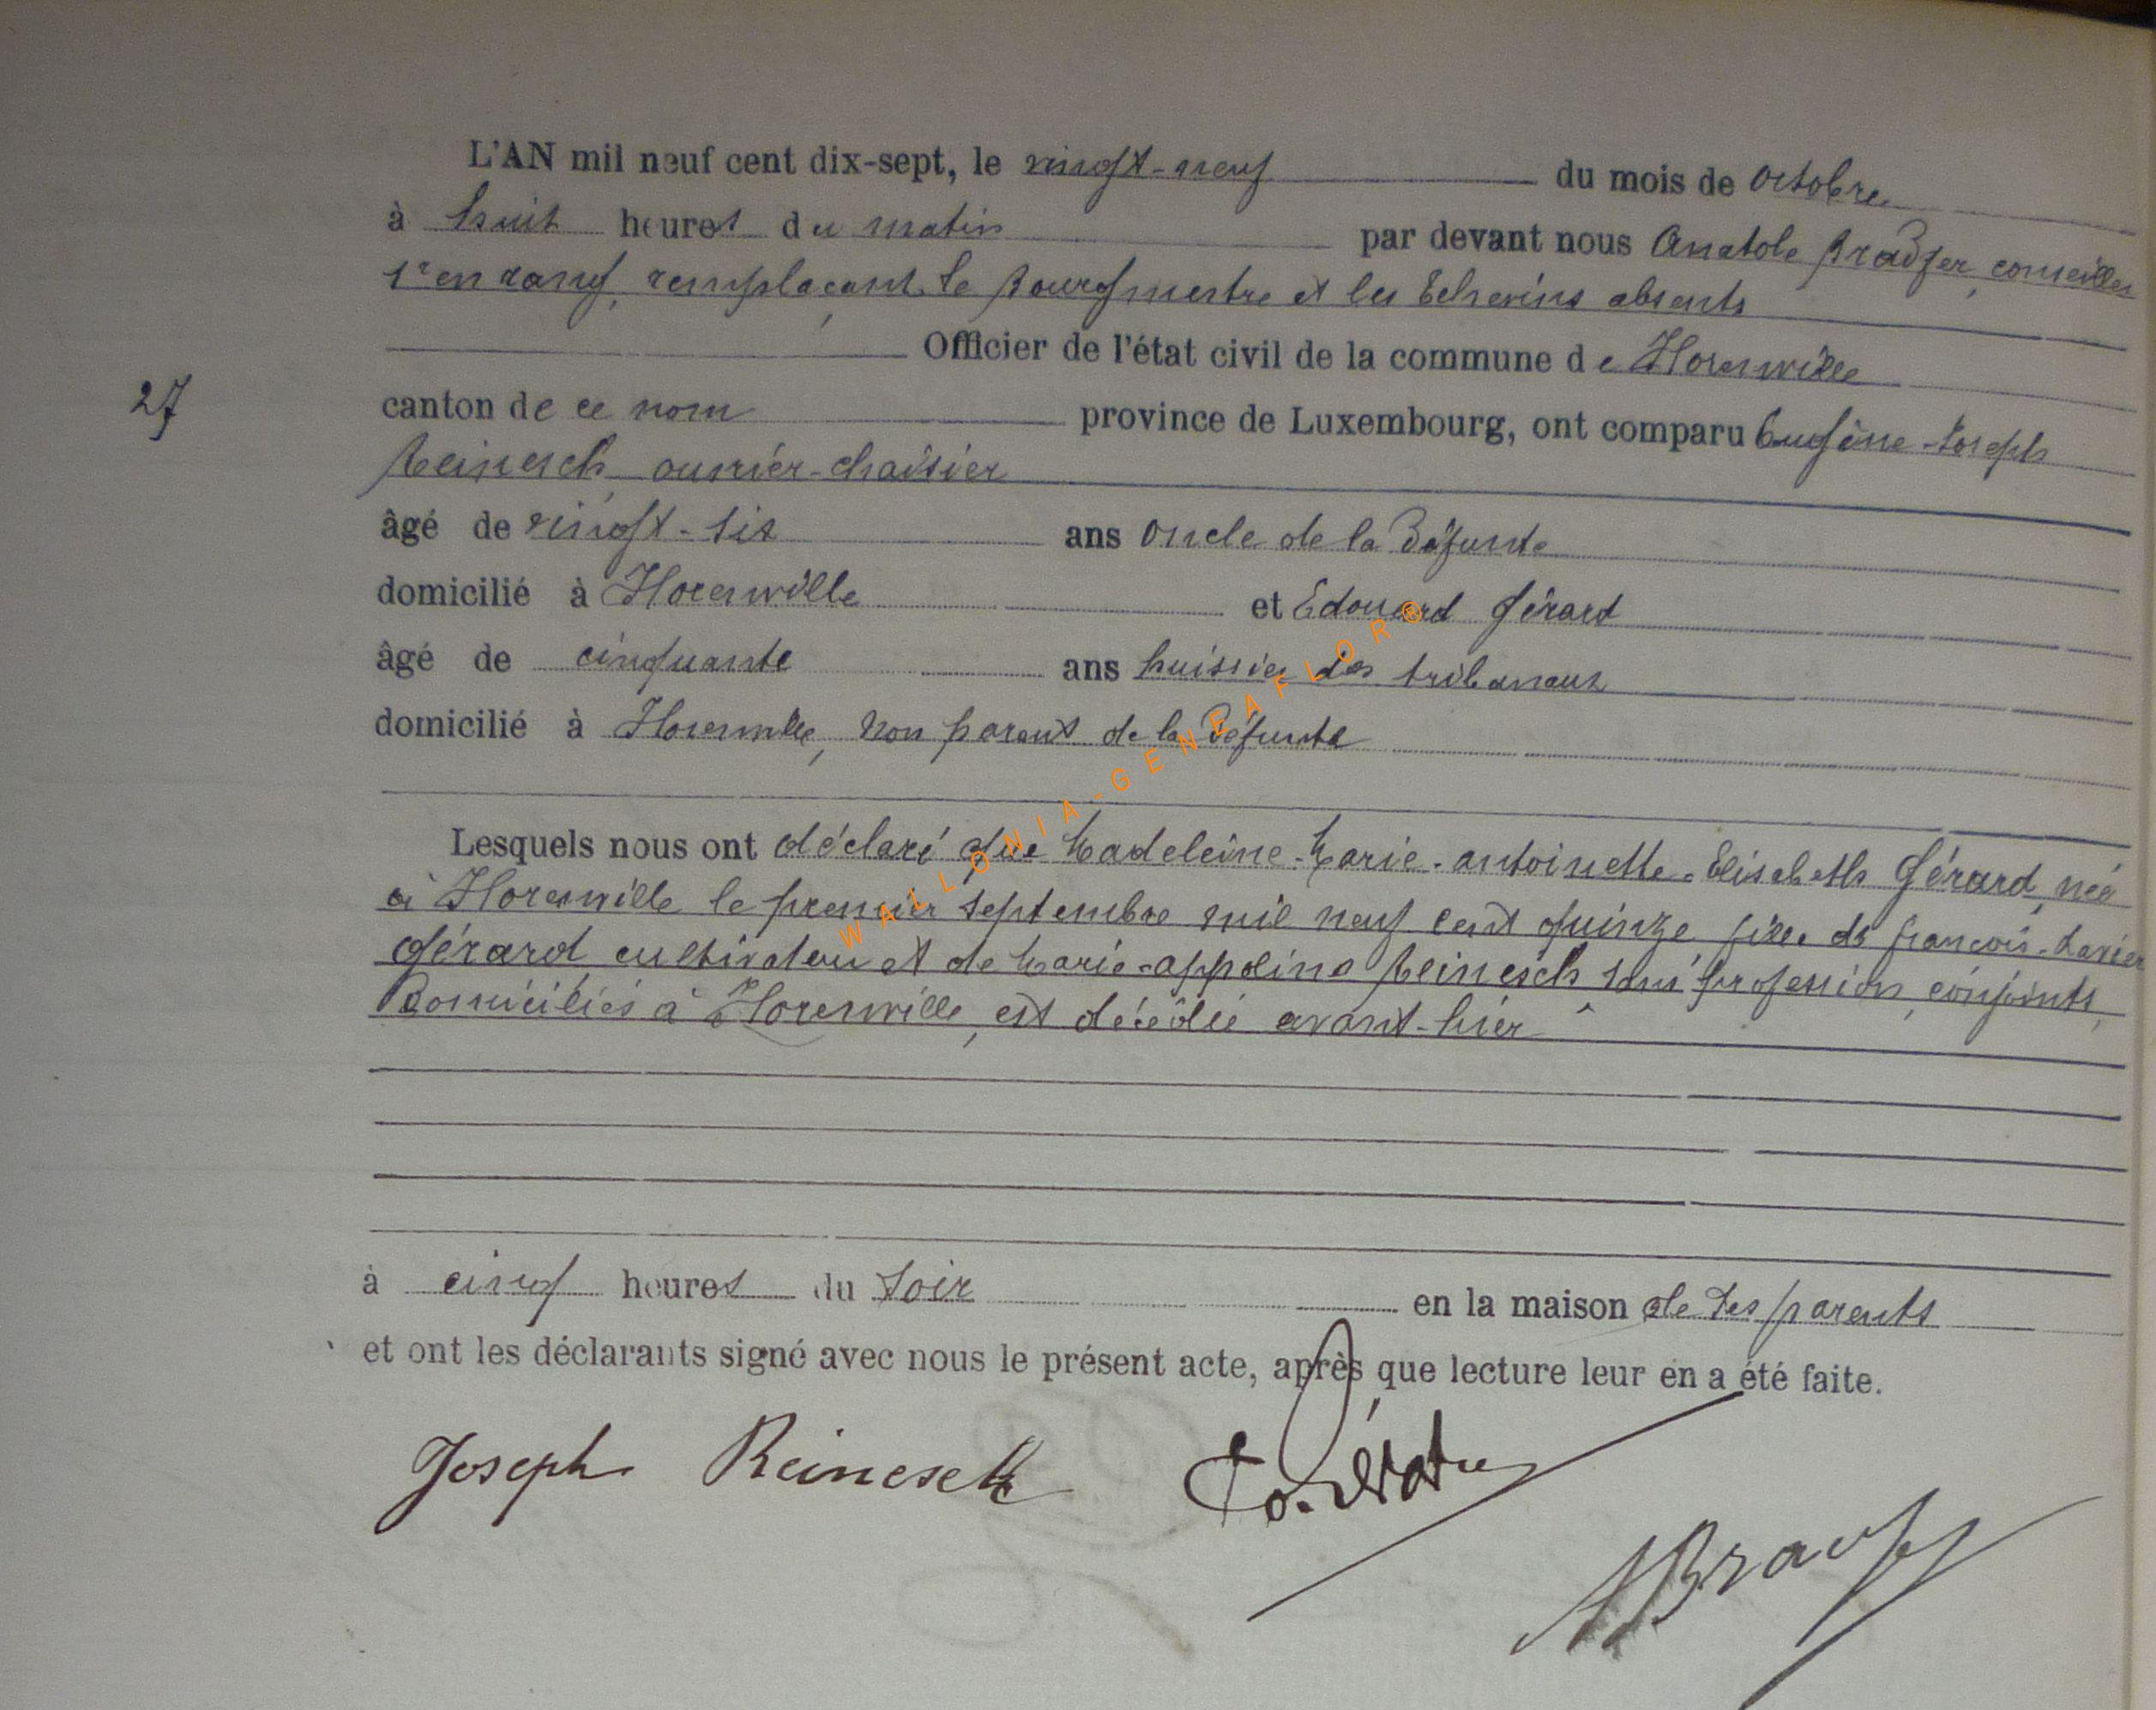 L'AN mil neuf cent dix-sept, le vingt-neuf du mois de octobre
à huit heures du matin par devant nous Anatole Bradfer, conseiller
1er en rang, remplaçant le Bourgmestre et les Echevins absents
Officier de l'état civil de la commune de Florenville
27
canton de ce nom province de Luxembourg, ont comparu Eugène-Joseph
Reinesch, ouvrier-chaisier
âgé de vingt-six ans oncle de la défunte
domicilié à Florenville et Edouard Gérard
âgé de cinquante ans huissier des tribunaux
domicilié à Florenville, non parent de la défunte
Lesquels nous ont déclaré que Madeleine-Marie-Antoinette-Elisabeth Gérard, née
à Florenville le premier septembre mil neuf cent quinze, fille de François-Xavier
Gérard, cultivateur et de Marie-Appoline Reinesch sans profession, conjoints,
domiciliés à Florenville, est décédée avant-hier
à cinq heures du soir en la maison de ses parents
et ont les déclarants signé avec nous le présent acte, après que lecture leur en a été faite.
Joseph Reinesch
WALLONIA-GENEAFLOR®